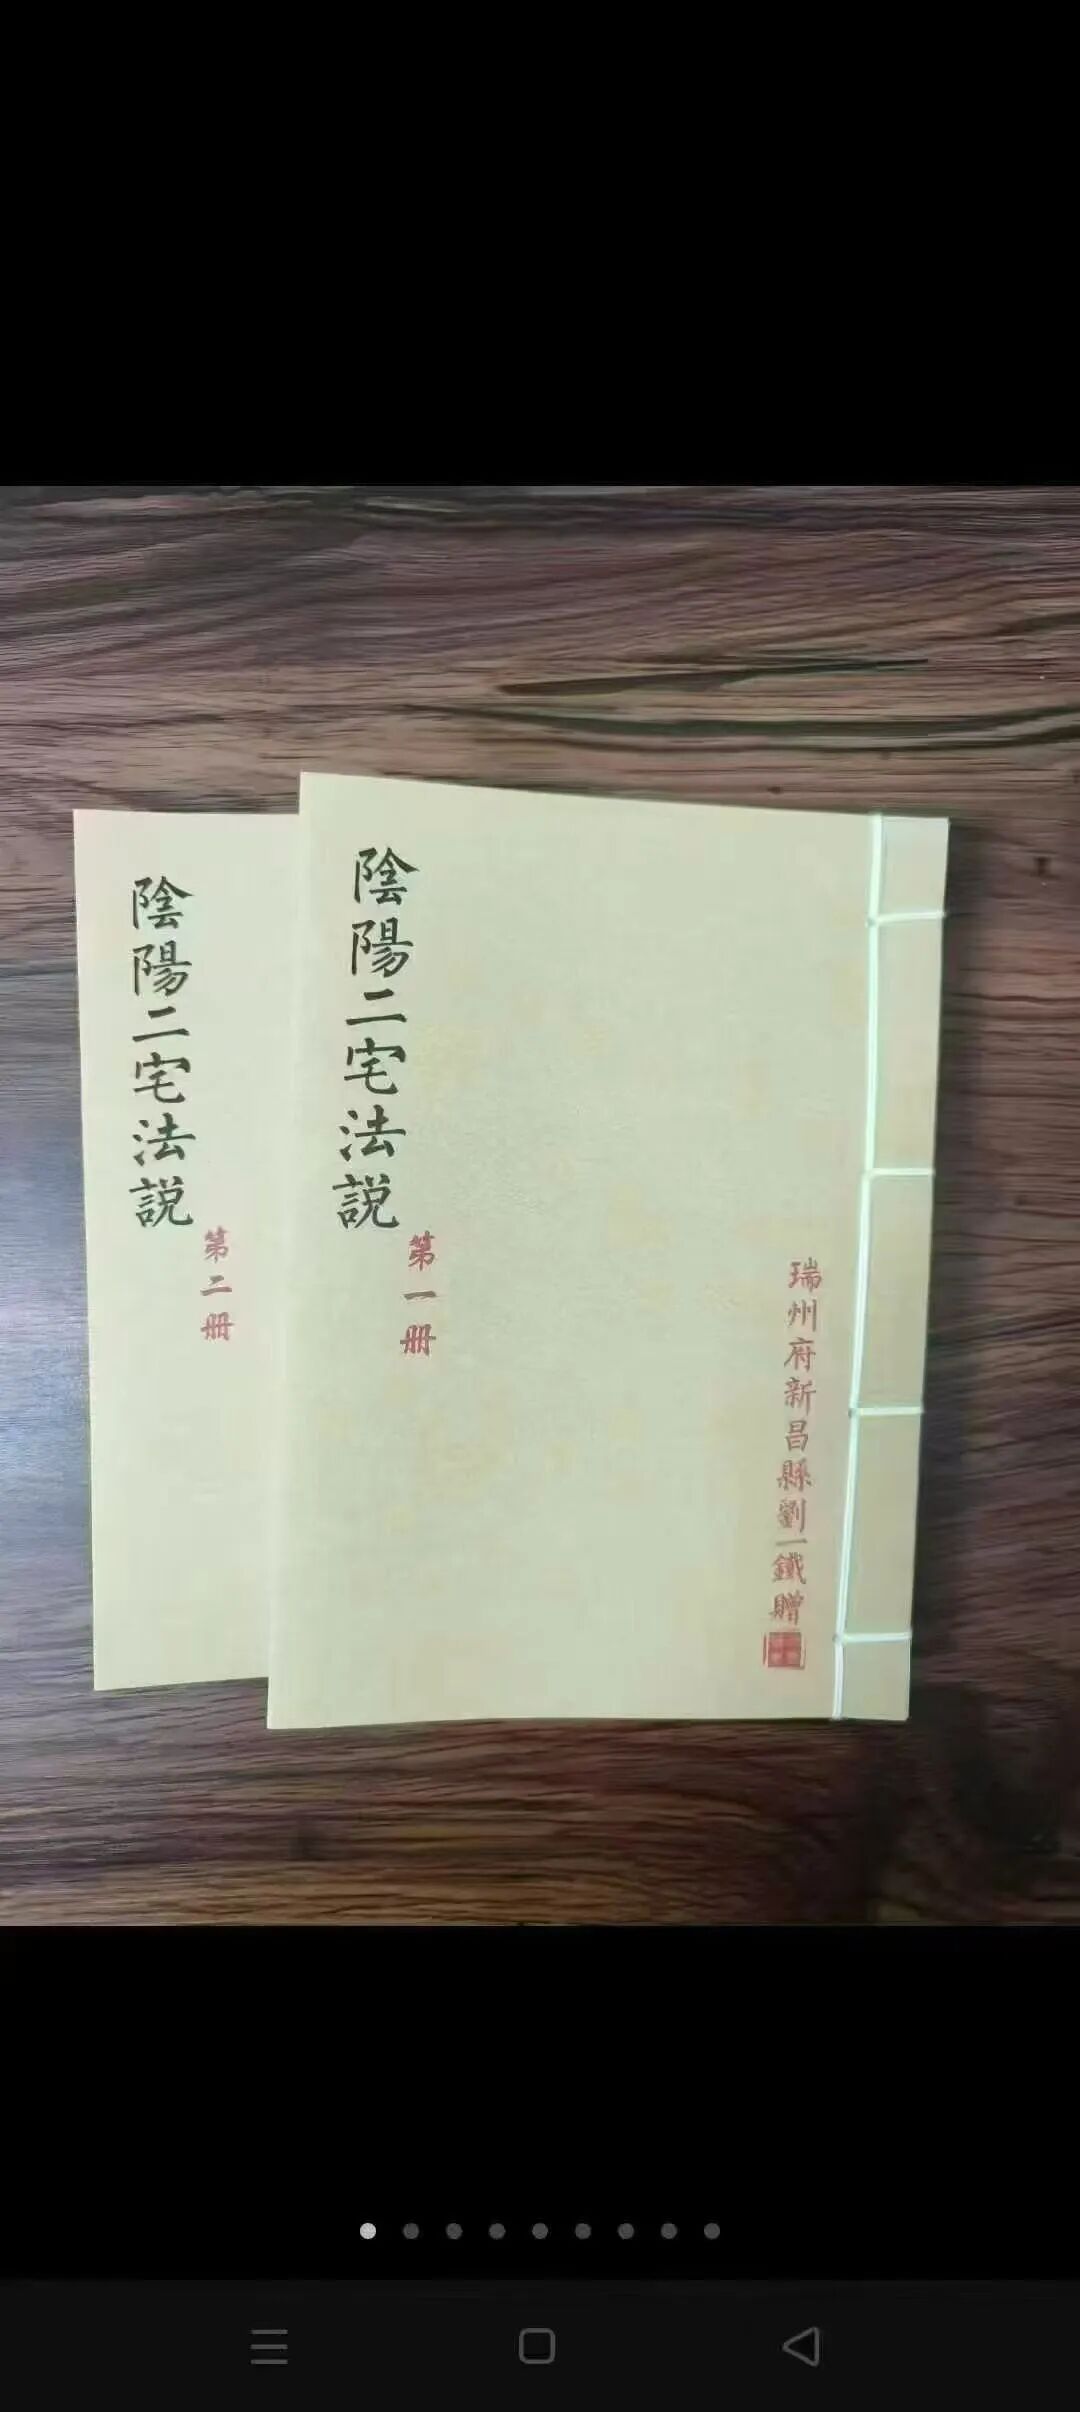 陰陽二宅法説
第一册
瑞州府新昌縣劉一鐵贈
陰陽二宅法説
第二册